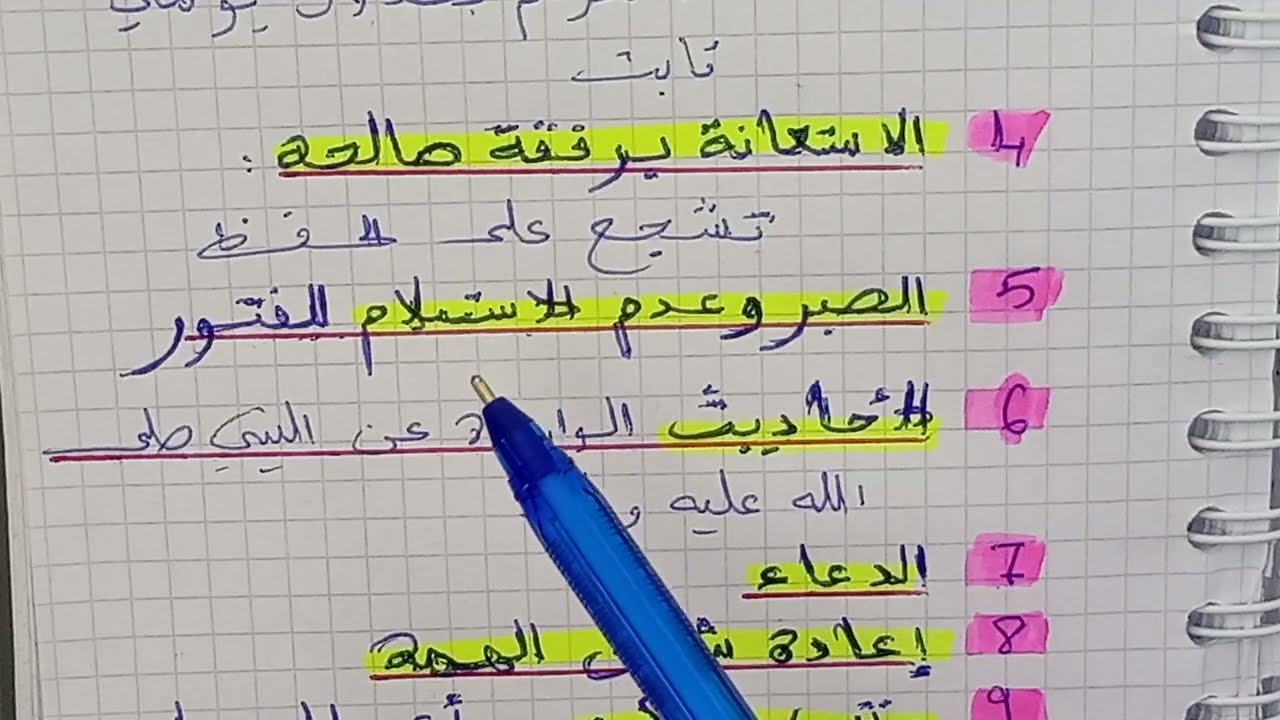 ثابت
4 الاستعانة برفقة صالحه :
تشجع على الحفظ
5 الصبر وعدم الاستسلام للفتور
6 الأحاديث عن النبي صلى
الله عليه و
7 الدعاء
8 إعادة الهمة
9